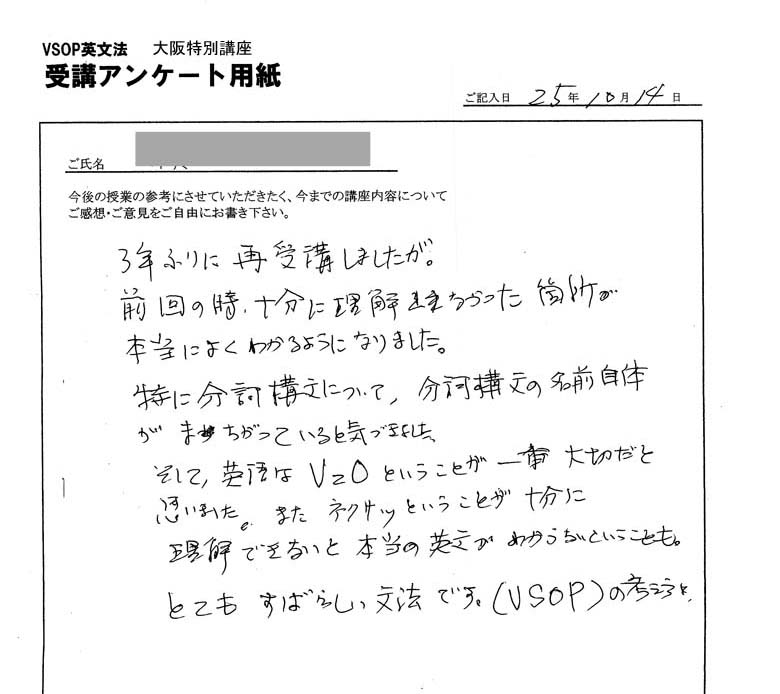 VSOP英文法 大阪特別講座
受講アンケート用紙
ご記入日 25年10月14日
ご氏名
今後の授業の参考にさせていただきたく、今までの講座内容について
ご感想・ご意見をご自由にお書き下さい。
3年ぶりに再受講しましたが。
前回の時、十分に理解出来なかった箇所が
本当によくわかるようになりました。
特に分詞構文について, 分詞構文の名前自体
が まちがっていると気づきました。
そして, 英語は V=O ということが 一番 大切だと
思いました。また ネクサスということが 十分に
理解できないと 本当の英文が わからないということも。
とても すばらしい 文法です。(VSOP)の考え方